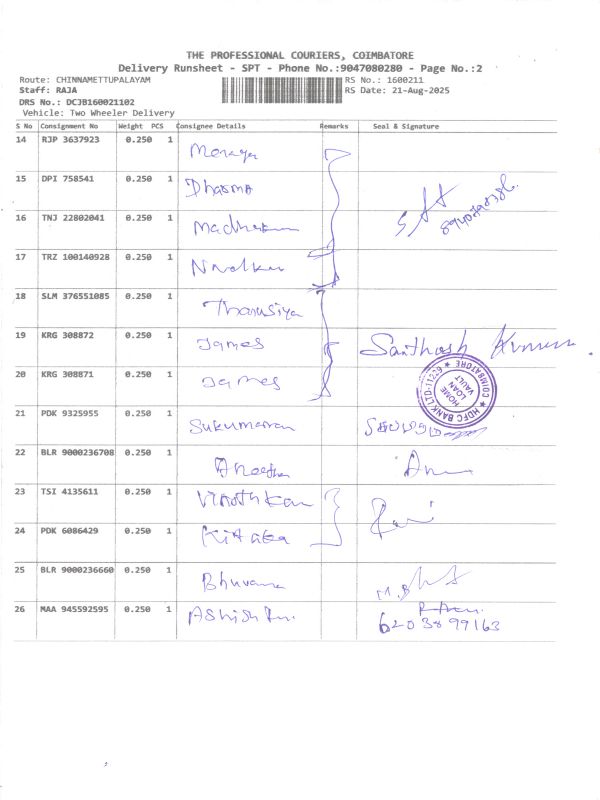 THE PROFESSIONAL COURIERS, COIMBATORE
Delivery Runsheet - SPT - Phone No.:9047080280 - Page No.:2
Route: CHINNAMETTUPALAYAM RS No.: 1600211
Staff: RAJA RS Date: 21-Aug-2025
DRS No.: DCJB160021102
Vehicle: Two Wheeler Delivery
S No Consignment No Weight PCS Consignee Details Remarks Seal & Signature
14 RJP 3637923 0.250 1
15 DPI 758541 0.250 1 Dharma
16 TNJ 22802041 0.250 1
17 TRZ 100140928 0.250 1
18 SLM 376551085 0.250 1 Tharusiya
19 KRG 308872 0.250 1 James Santhosh Kumar.
20 KRG 308871 0.250 1 James
HDFC BANK LTD-11229 ★ COIMBATORE ★
HOME LOAN VAULT
21 PDK 9325955 0.250 1 Sukumaran
22 BLR 9000236708 0.250 1
23 TSI 4135611 0.250 1
24 PDK 6086429 0.250 1
25 BLR 9000236660 0.250 1 Bhuvana
26 MAA 945592595 0.250 1 Ashish
6203899163